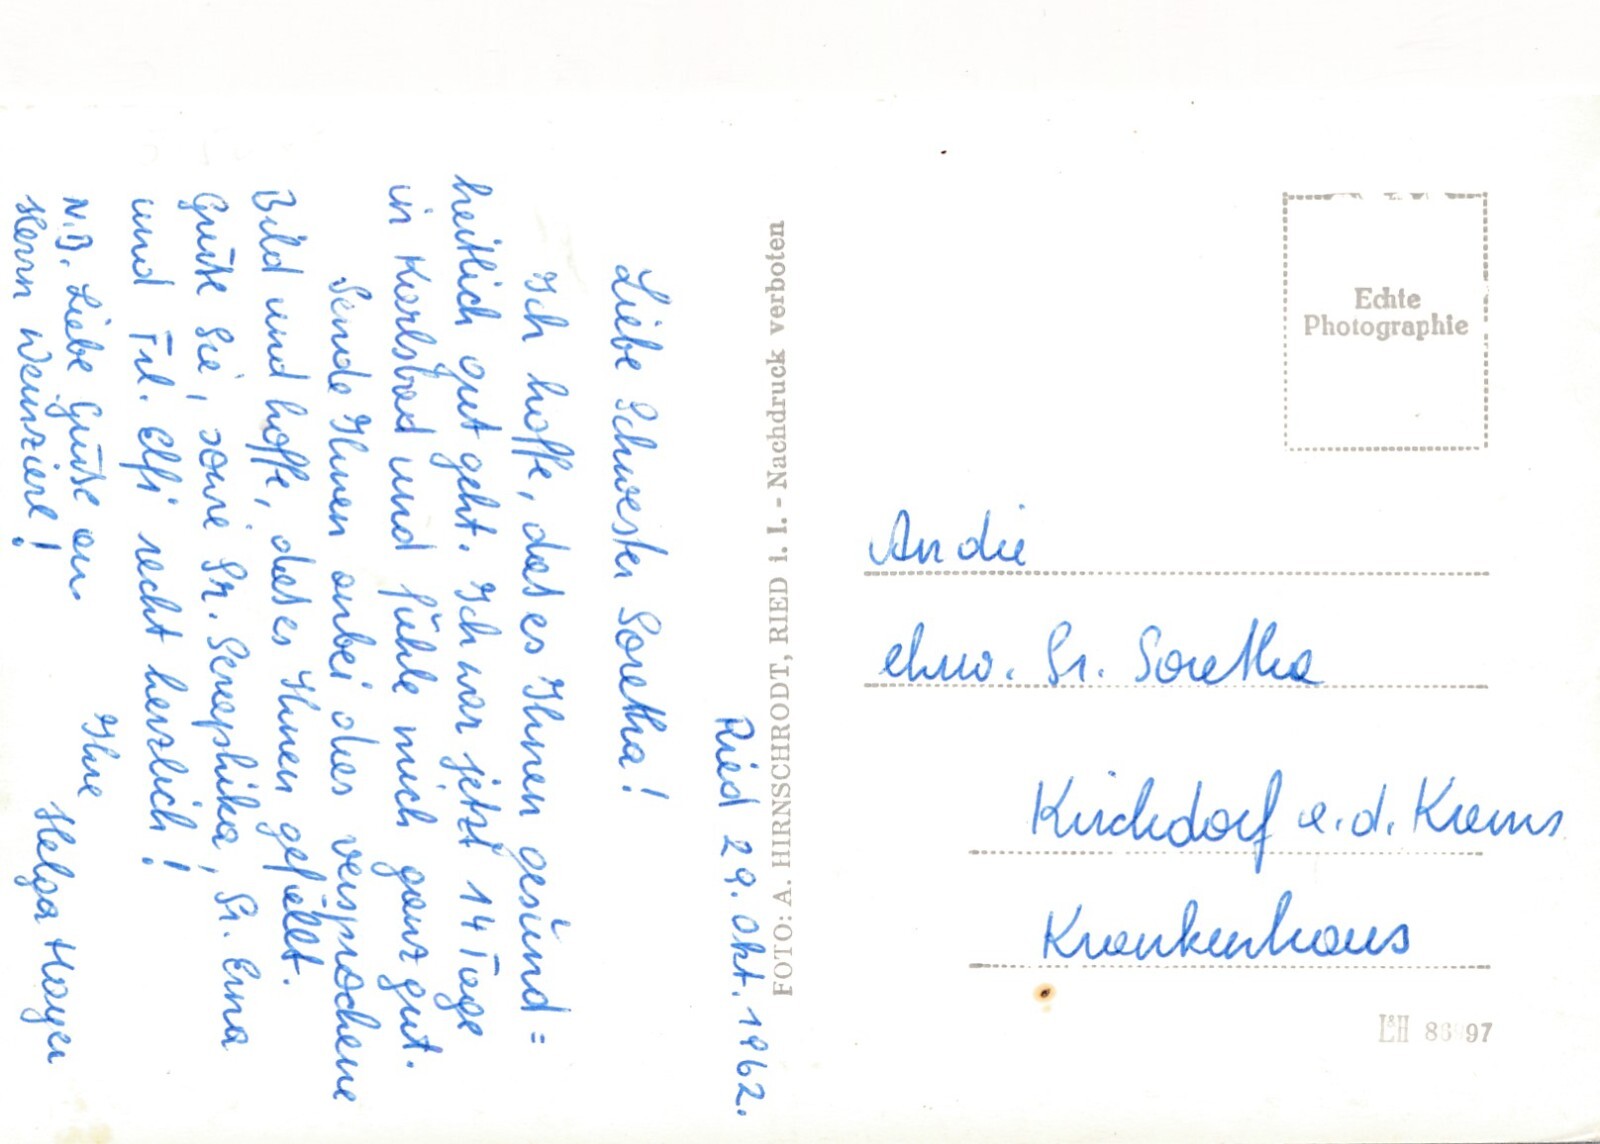 Ried 29. Okt. 1962.
Liebe Schwester Soretha!
Ich hoffe, das es Ihnen gesund=
heitlich gut geht. Ich war jetzt 14 Tage
in Karlsbad und fühle mich ganz gut.
Sende Ihnen anbei das versprochene
Bild und hoffe, das es Ihnen gefällt.
Grüße Sie, sowie Sr. Seraphika, Sr. Erna
und Frl. Elfi recht herzlich!
Ihre
Helga Mayer
N.B. Liebe Grüße an
Herrn Weinzierl!
FOTO: A. HIRNSCHRODT, RIED I. I. - Nachdruck verboten
Echte
Photographie
An die
ehrw. Sr. Soretha
Kirchdorf a.d. Krems
Krankenhaus
L&H 86 97